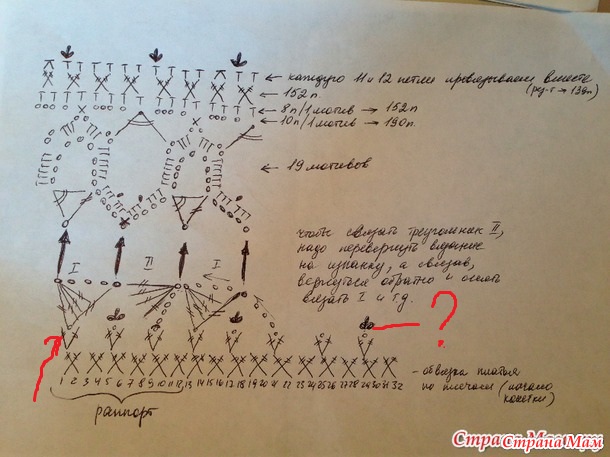 ← каждую 11 и 12 петлю провязываем вместе
(рез-т → 139п)
← 152п.
← 8п/1 мотив → 152п
← 10п/1 мотив → 190п.
← 19 мотивов
чтобы связать треугольник II,
надо перевернуть вязание
на изнанку, а связав,
вернуться обратно и опять
вязать I и т.д.
I II I
?
1 2 3 4 5 6 7 8 9 10 11 12 13 14 15 16 17 18 19 20 21 22 23 24 25 26 27 28 29 30 31 32
- обвязка платья
по плечам (начало
кокетки)
раппорт
СтранаМам